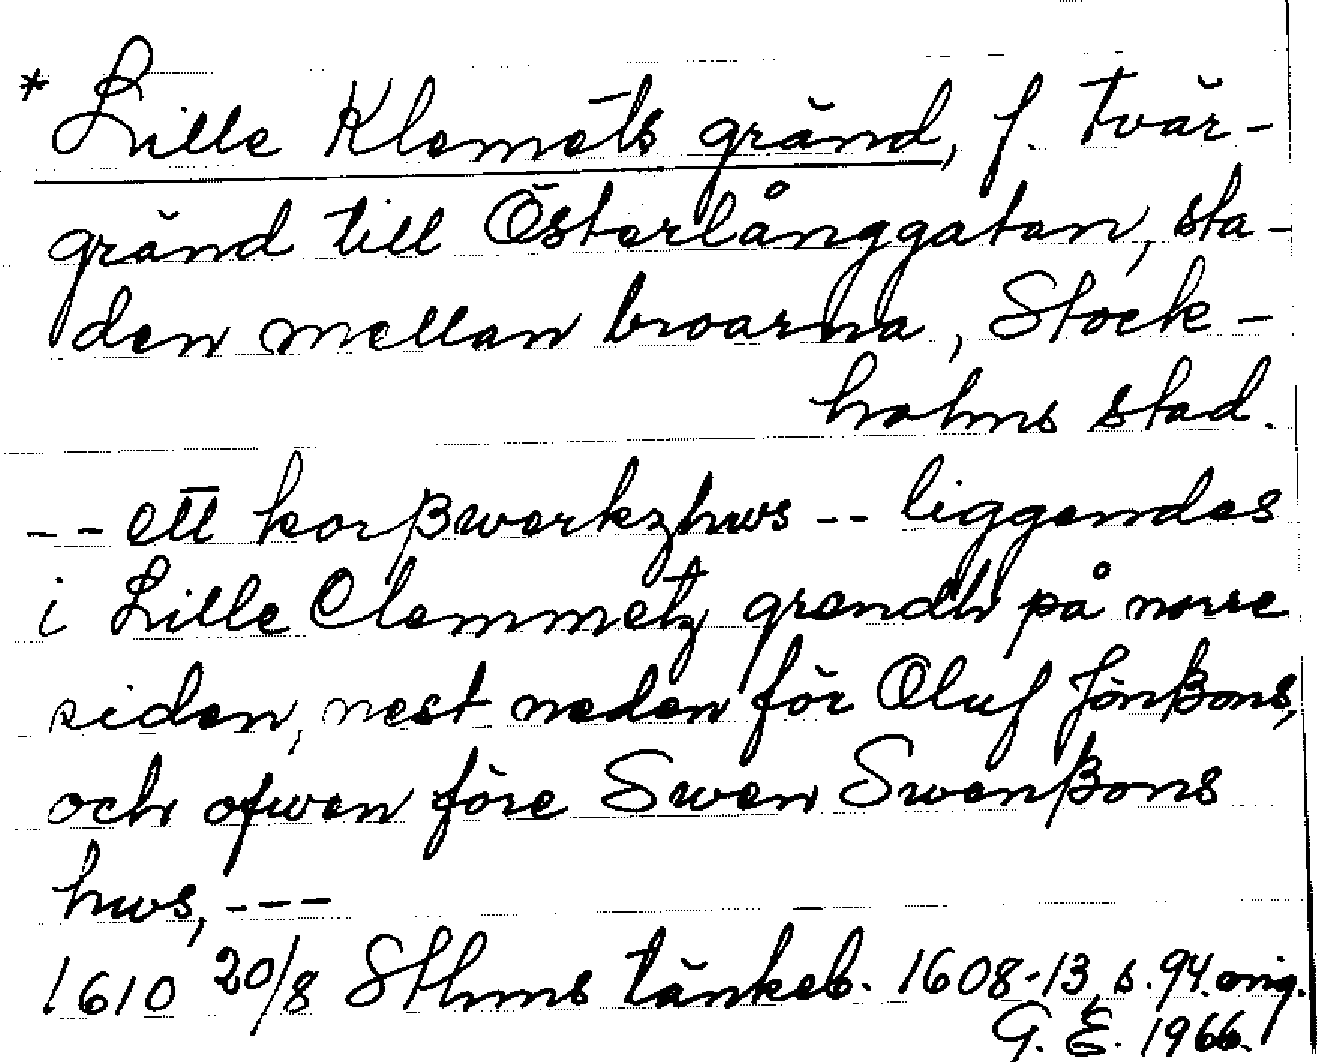 * Lille Klemets gränd, f. tvär-
gränd till Österlånggatan, sta-
den mellan broarna, Stock-
holms stad.
-- ett korßwerkzhws -- liggendes
i Lille Clemmetz grendh på norre
siden, nest neden för Oluf Jönßons,
och ofwen före Swen Swenßons
hws, ---
1610 20/8 Sthms tänkeb. 1608-13, s. 94. orig.
G. E. 1966.